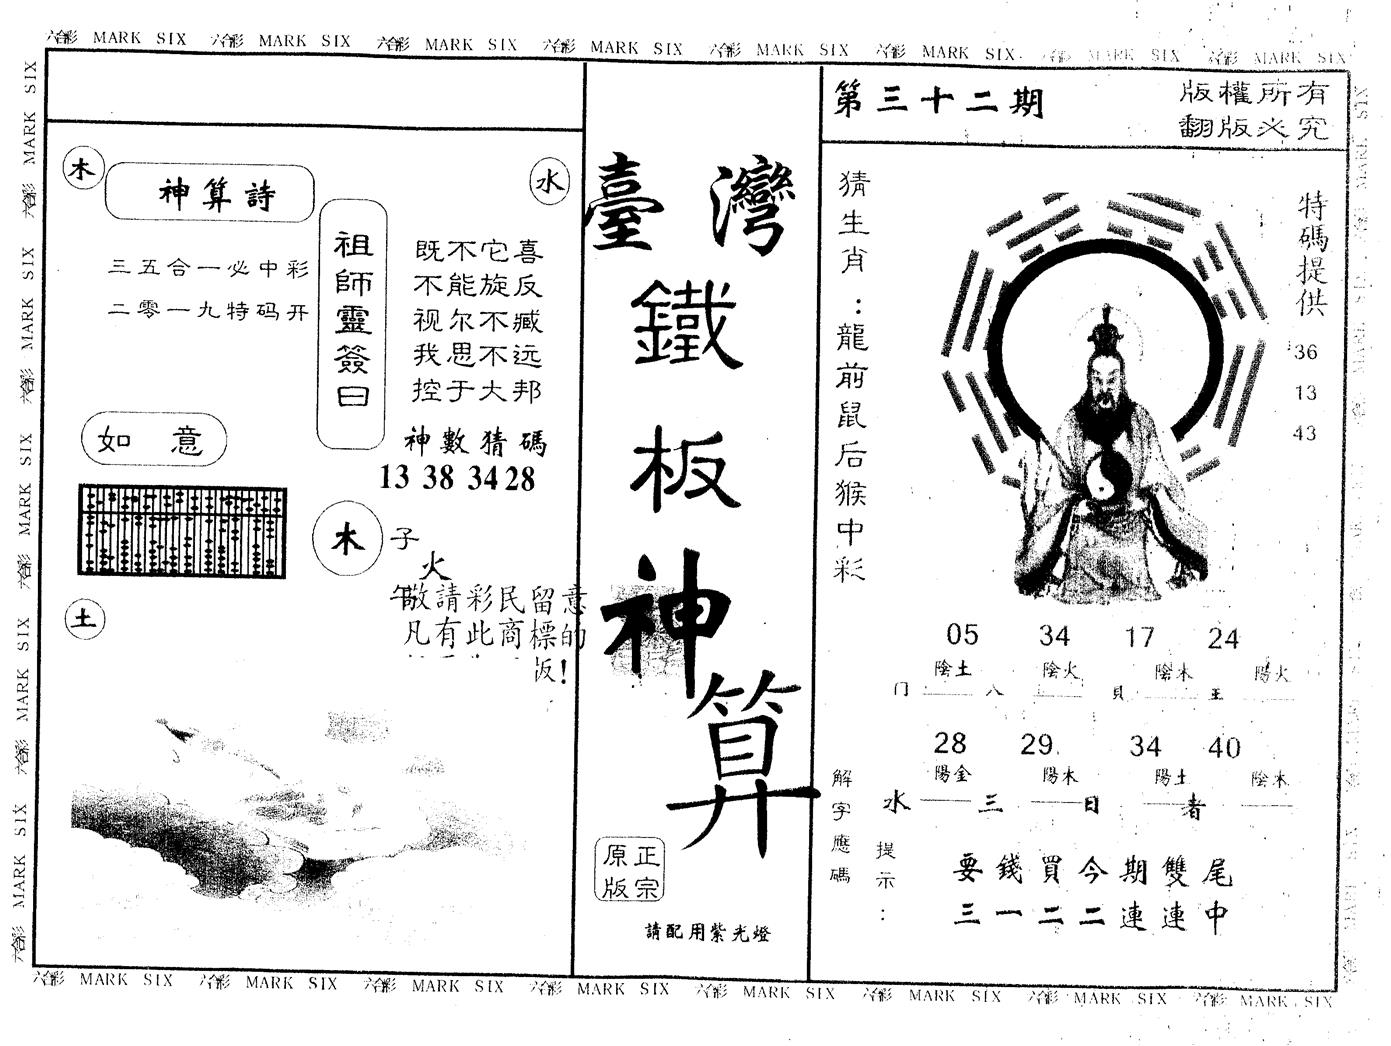 六合彩 MARK SIX 六合彩 MARK SIX 六合彩 MARK SIX 六合彩 MARK SIX 六合彩 MARK SIX 六合彩 MARK SIX 六合彩 MARK SIX 六合彩 MARK SIX
木
神算詩
水
三五合一必中彩
二零一九特码开
祖師靈簽曰
既不它喜
不能旋反
视尔不臧
我思不远
控于大邦
神數猜碼
13 38 34 28
如意
木
子
火
午
敬請彩民留意
凡有此商標的
版!
土
臺灣
鐵
板
神
算
正宗
原版
請配用紫光燈
第三十二期
版權所有
翻版必究
猜生肖：龍前鼠后猴中彩
特碼提供
36
13
43
05 34 17 24
陰土 陰火 陰木 陽火
门 八 貝 王
28 29 34 40
陽金 陽木 陽土 陰木
水 三 日 者
解字應碼
提示：
要錢買今期雙尾
三一二二連連中
六合彩 MARK SIX 六合彩 MARK SIX 六合彩 MARK SIX 六合彩 MARK SIX 六合彩 MARK SIX 六合彩 MARK SIX 六合彩 MARK SIX 六合彩 MARK SIX